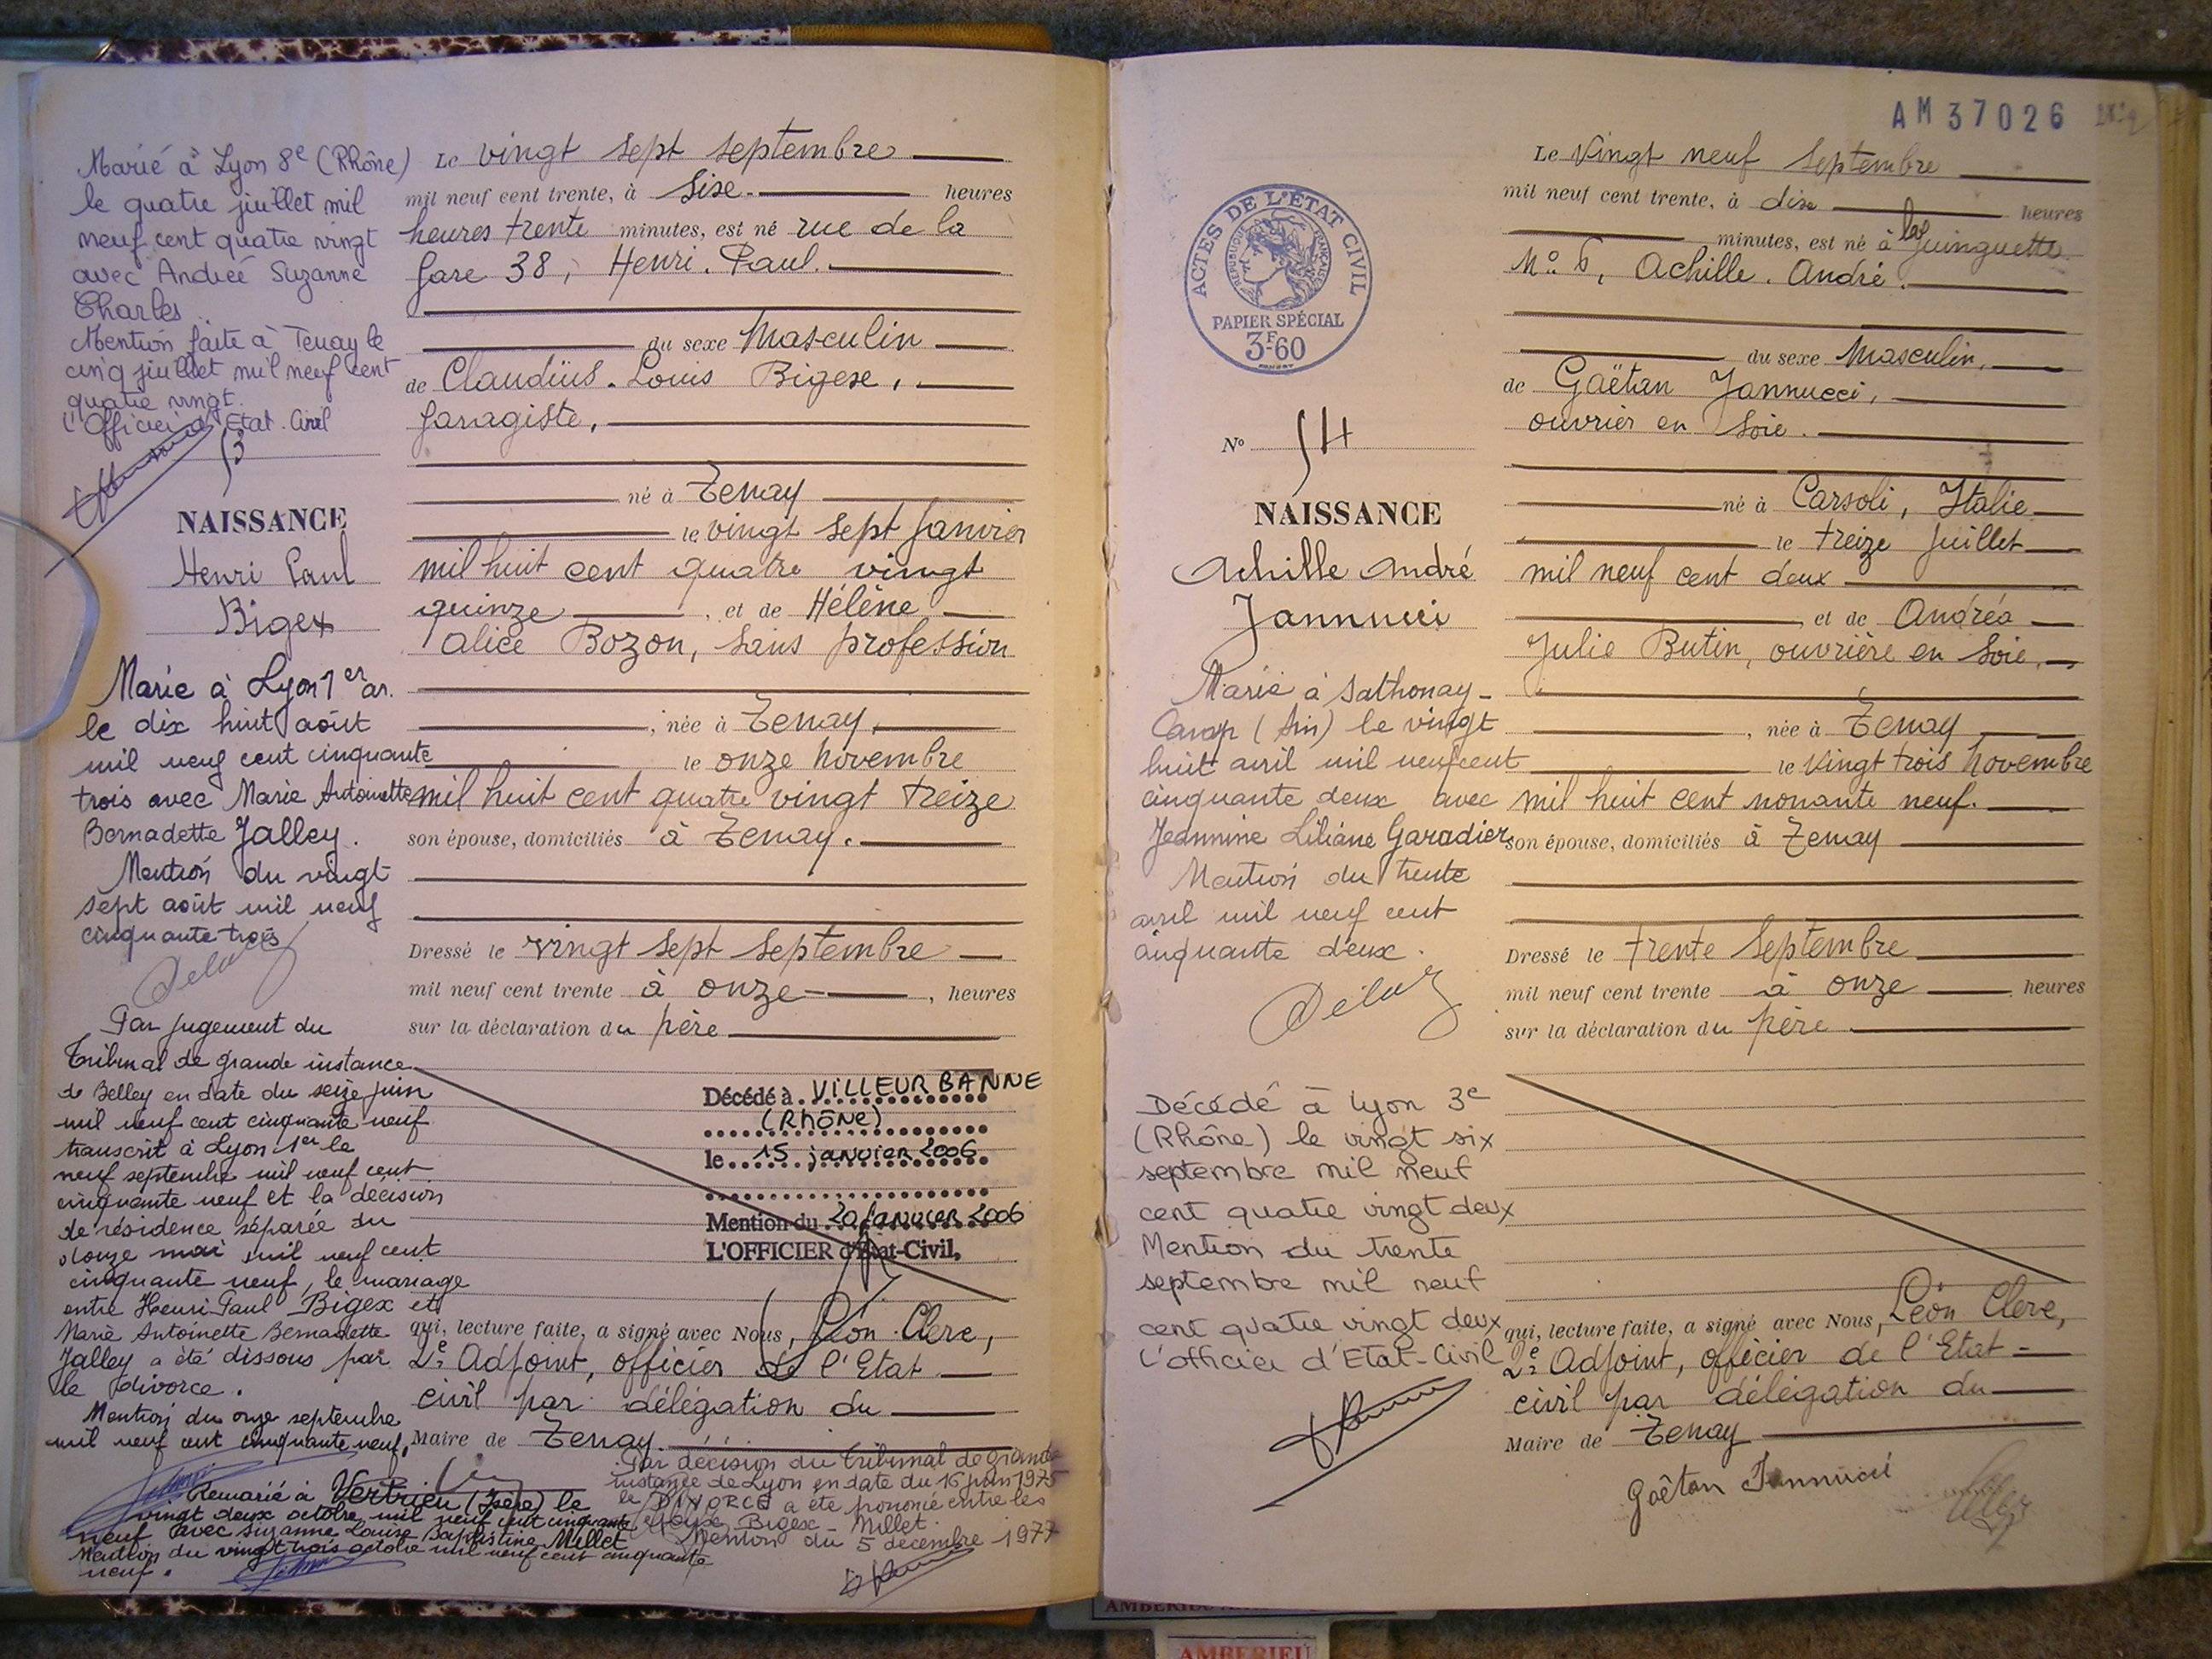 Marié à Lyon 8e (Rhône)
le quatre juillet mil
neuf cent quatre vingt
avec Andreé Suzanne
Charles.
Mention faite à Tenay le
cinq juillet mil neuf cent
quatre vingt.
L'Officier d'Etat. Civil
53
NAISSANCE
Henri Paul
Bigex
Marié à Lyon 1er ar.
le dix huit août
mil neuf cent cinquante
trois avec Marie Antoinette
Bernadette Jalley.
Mention du vingt
sept août mil neuf
cinquante trois
Par jugement du
Tribunal de grande instance
de Belley en date du seize juin
mil neuf cent cinquante neuf
transcrit à Lyon 1er le
neuf septembre mil neuf cent
cinquante neuf et la décision
de résidence séparée du
douze mai mil neuf cent
cinquante neuf, le mariage
entre Henri Paul Bigex et
Marie Antoinette Bernadette
Jalley a été dissous par
le divorce.
Mention du onze septembre
mil neuf cent cinquante neuf.
Remarié à Vertrieu (Isère) le
vingt deux octobre mil neuf cent cinquante
neuf avec Suzanne Louise Baptistine Millet
Mention du vingt trois octobre mil neuf cent cinquante
neuf.
Le vingt sept septembre
mil neuf cent trente, à Sixe heures
heures trente minutes, est né rue de la
Gare 38, Henri. Paul.
du sexe Masculin
de Claudius. Louis Bigex,
garagiste,
né à Tenay
le vingt sept Janvier
mil huit cent quatre vingt
quinze, et de Hélène
Alice Bozon, sans profession
, née à Tenay,
le onze Novembre
mil huit cent quatre vingt treize
son épouse, domiciliés à Tenay.
Dressé le vingt sept septembre
mil neuf cent trente à onze, heures
sur la déclaration du père
Décédé à VILLEURBANNE
(Rhône)
le 15 janvier 2006
Mention du 20 janvier 2006
L'OFFICIER d'Etat-Civil,
qui, lecture faite, a signé avec Nous, Léon Clerc,
2e Adjoint, officier de l'Etat
civil par délégation du
Maire de Tenay.
Par décision du Tribunal de grande
instance de Lyon en date du 16 juin 1975
le DIVORCE a été prononcé entre les
époux Bigex - Millet.
Mention du 5 décembre 1977
AM 37026
ACTES DE L'ÉTAT CIVIL
RÉPUBLIQUE FRANÇAISE
PAPIER SPÉCIAL
3F60
No 54
NAISSANCE
Achille André
Jannucci
Marié à Sathonay-
Camp (Ain) le vingt
huit avril mil neuf cent
cinquante deux avec
Jeannine Liliane Garadier
Mention du trente
avril mil neuf cent
cinquante deux.
Décédé à Lyon 3e
(Rhône) le vingt six
septembre mil neuf
cent quatre vingt deux
Mention du trente
septembre mil neuf
cent quatre vingt deux
L'officier d'Etat-Civil
Le Vingt neuf Septembre
mil neuf cent trente, à dixe heures
minutes, est né à la Guinguette
No 6, Achille. André.
du sexe Masculin,
de Gaëtan Jannucci,
ouvrier en Soie.
né à Carsoli, Italie
le treize Juillet
mil neuf cent deux
, et de Andréa
Julie Butin, ouvrière en Soie,
, née à Tenay
le Vingt trois Novembre
mil huit cent nonante neuf.
son épouse, domiciliés à Tenay
Dressé le trente Septembre
mil neuf cent trente à onze heures
sur la déclaration du père
qui, lecture faite, a signé avec Nous, Léon Clerc,
2e Adjoint, officier de l'Etat
civil par délégation du
Maire de Tenay
Gaëtan Jannucci
AMBERIEU